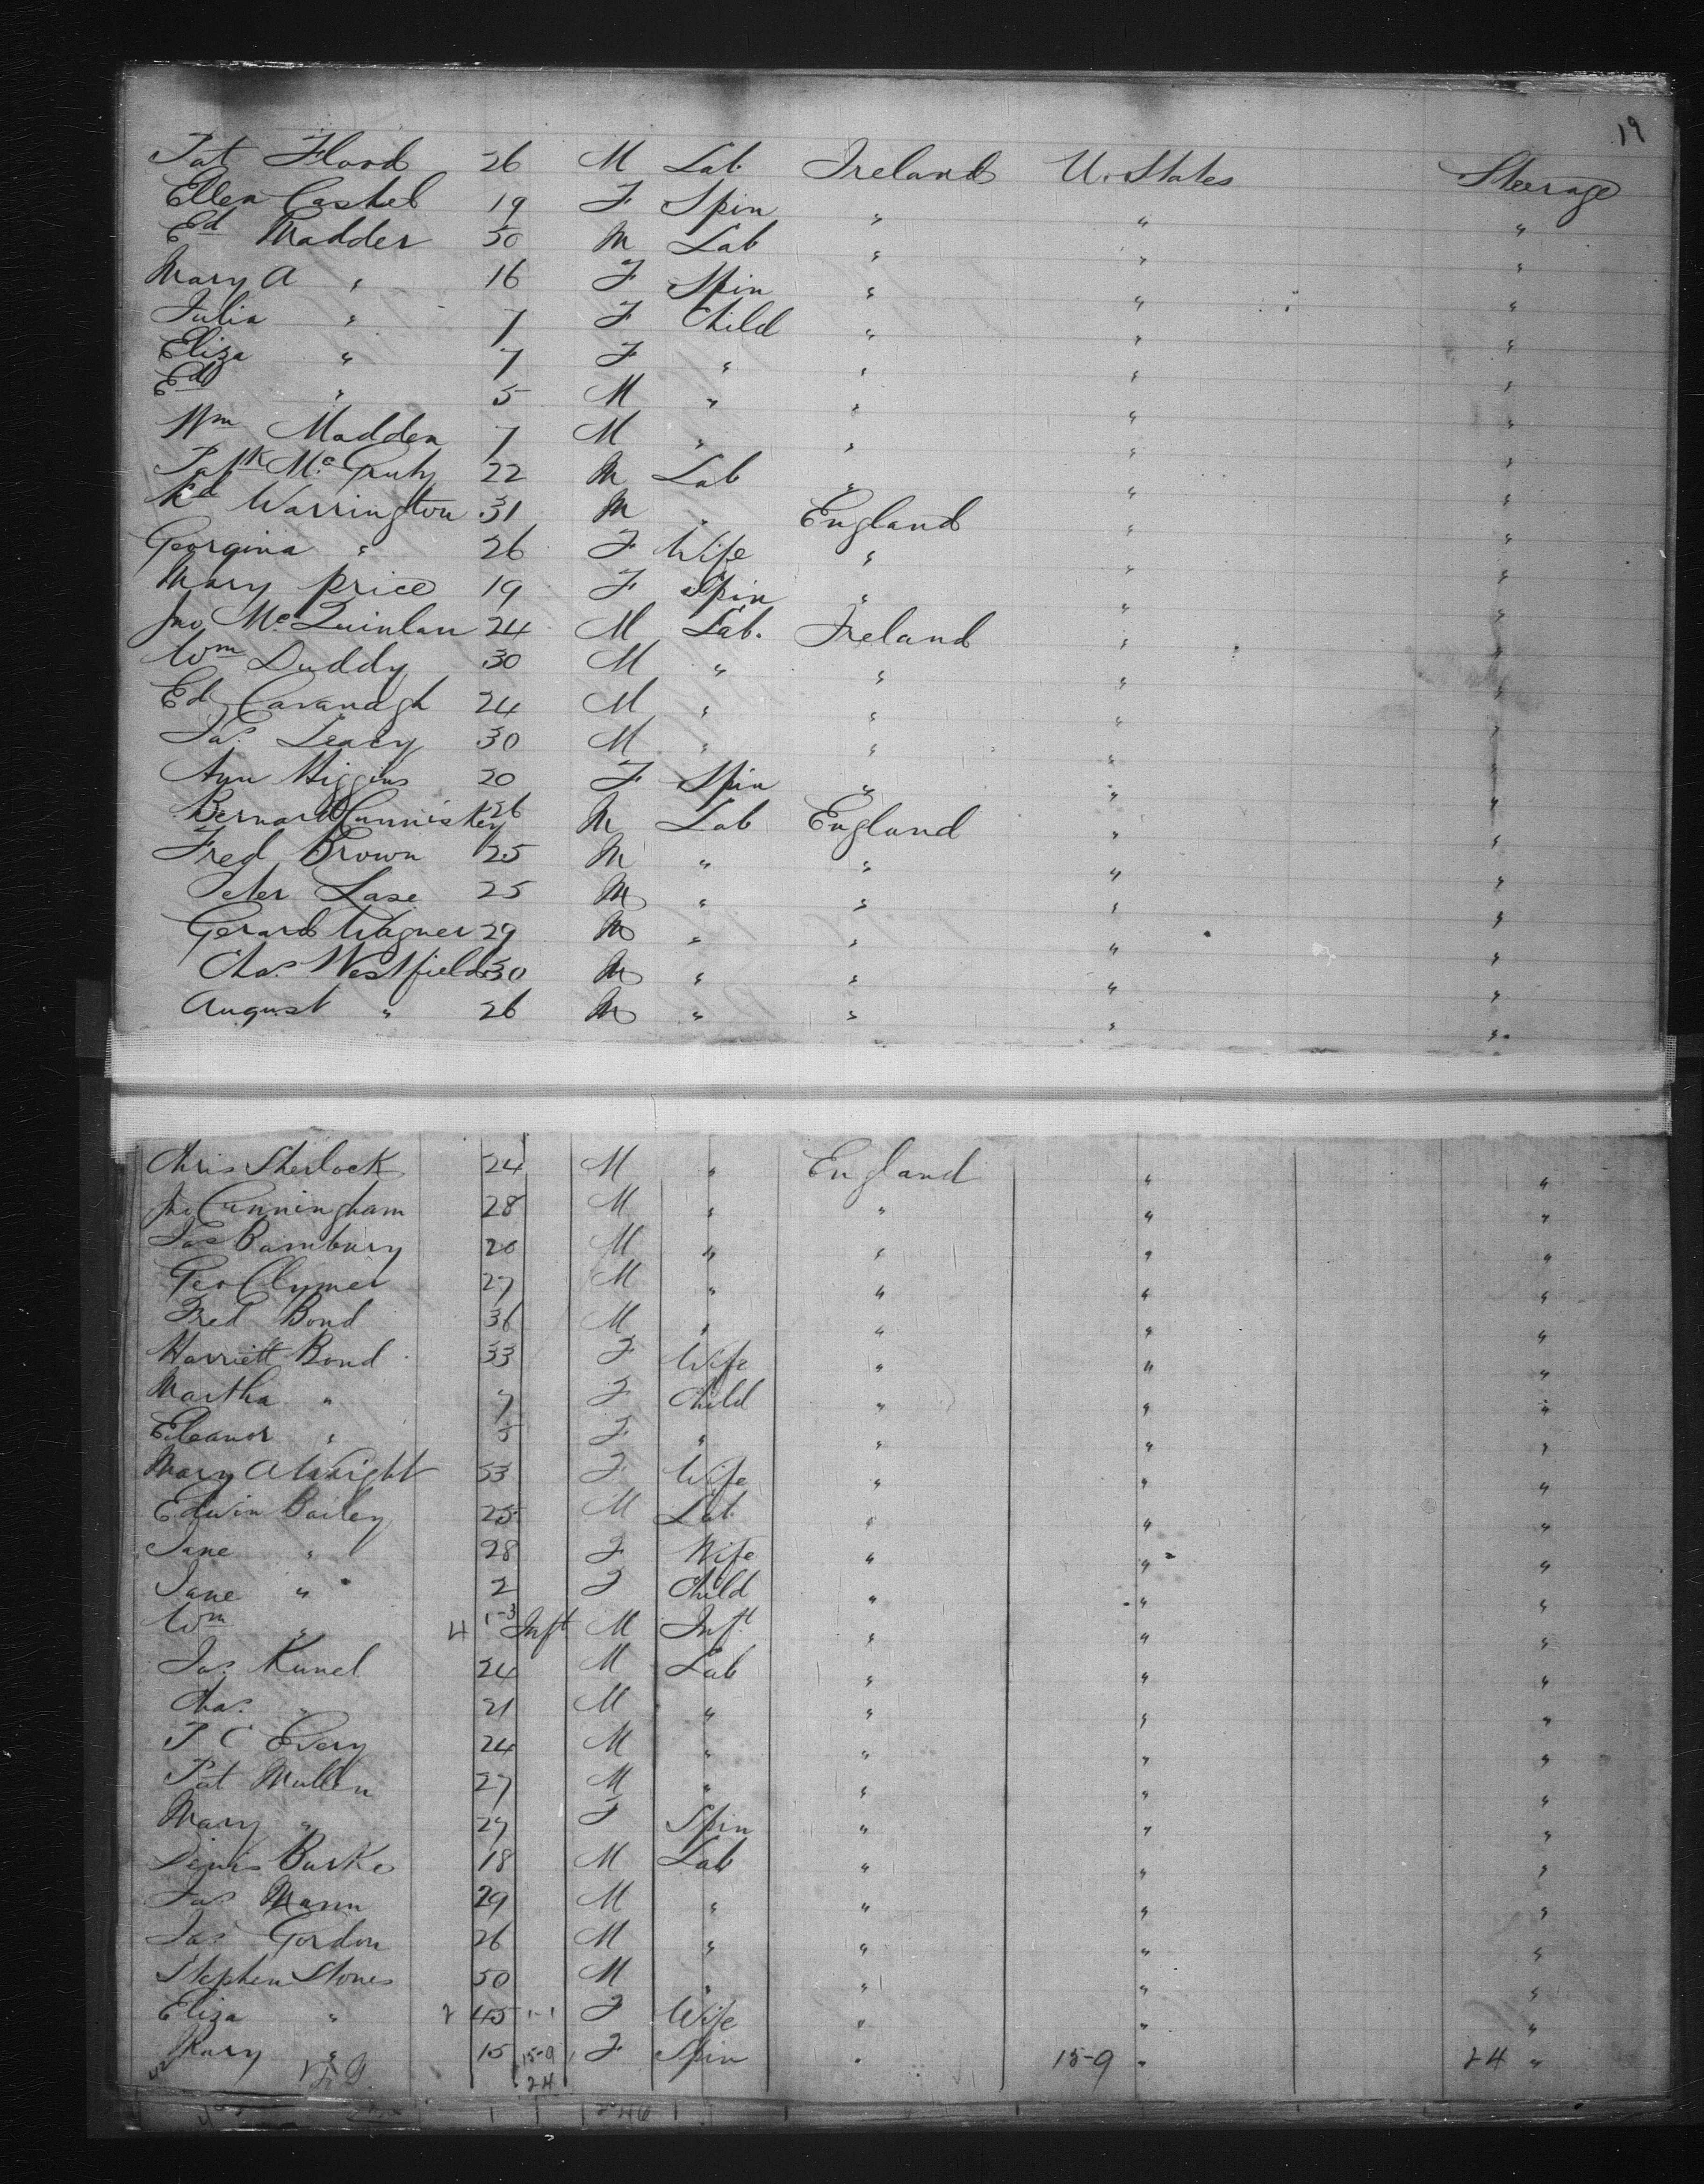 19
Pat Flood 26 M Lab Ireland U. States Steerage
Ellen Cashel 19 F Spin " " "
Ed Madder 50 M Lab " " "
Mary A " 16 F Spin " " "
Julia " 7 F Child " " "
Eliza " 7 F " " " "
Ed " 5 M " " " "
Wm Madden 7 M " " " "
Patk Mc 22 M Lab " " "
Warrington 31 M " England " "
Georgina " 26 F Wife " " "
Mary price 19 F Spin " " "
Jno McQuinlan 24 M Lab. Ireland " "
Wm Duddy 30 M " " " "
Ed Cavanagh 24 M " " " "
Jas. Leacy 30 M " " " "
Ann Higgins 20 F Spin " " "
Bernard Cunniskey 26 M Lab England " "
Fred Brown 25 M " " " "
Peter Lase 25 M " " " "
Gerard Wagner 29 M " " " "
Chas. Westfield 30 M " " " "
August " 26 M " " " "
Chris Sherlock 24 M " England " "
Jno Cunningham 28 M " " " "
Jas Bambury 20 M " " " "
Geo Clymer 27 M " " " "
Fred Bond 36 M " " " "
Harriett Bond 33 F Wife " " "
Martha " 7 F Child " " "
Eleanor " 5 F " " " "
Mary A Wright 53 F Wife " " "
Edwin Bailey 25 M Lab " " "
Jane " 28 F Wife " " "
Jane " 2 F Child " " "
Wm " 4 1-3 Inft M Inft " " "
Jas. Kunel 24 M Lab " " "
Chas. " 21 M " " " "
P C Every 24 M " " " "
Pat Mullen 27 M " " " "
Mary " 27 F Spin " " "
Denis Burke 18 M Lab " " "
Jas Mann 29 M " " " "
Jas Gordon 26 M " " " "
Stephen Stones 50 M " " " "
Eliza " 2 45 1-1 F Wife " " "
Mary " 15 15-9 F Spin " 15-9 " 24 "
24